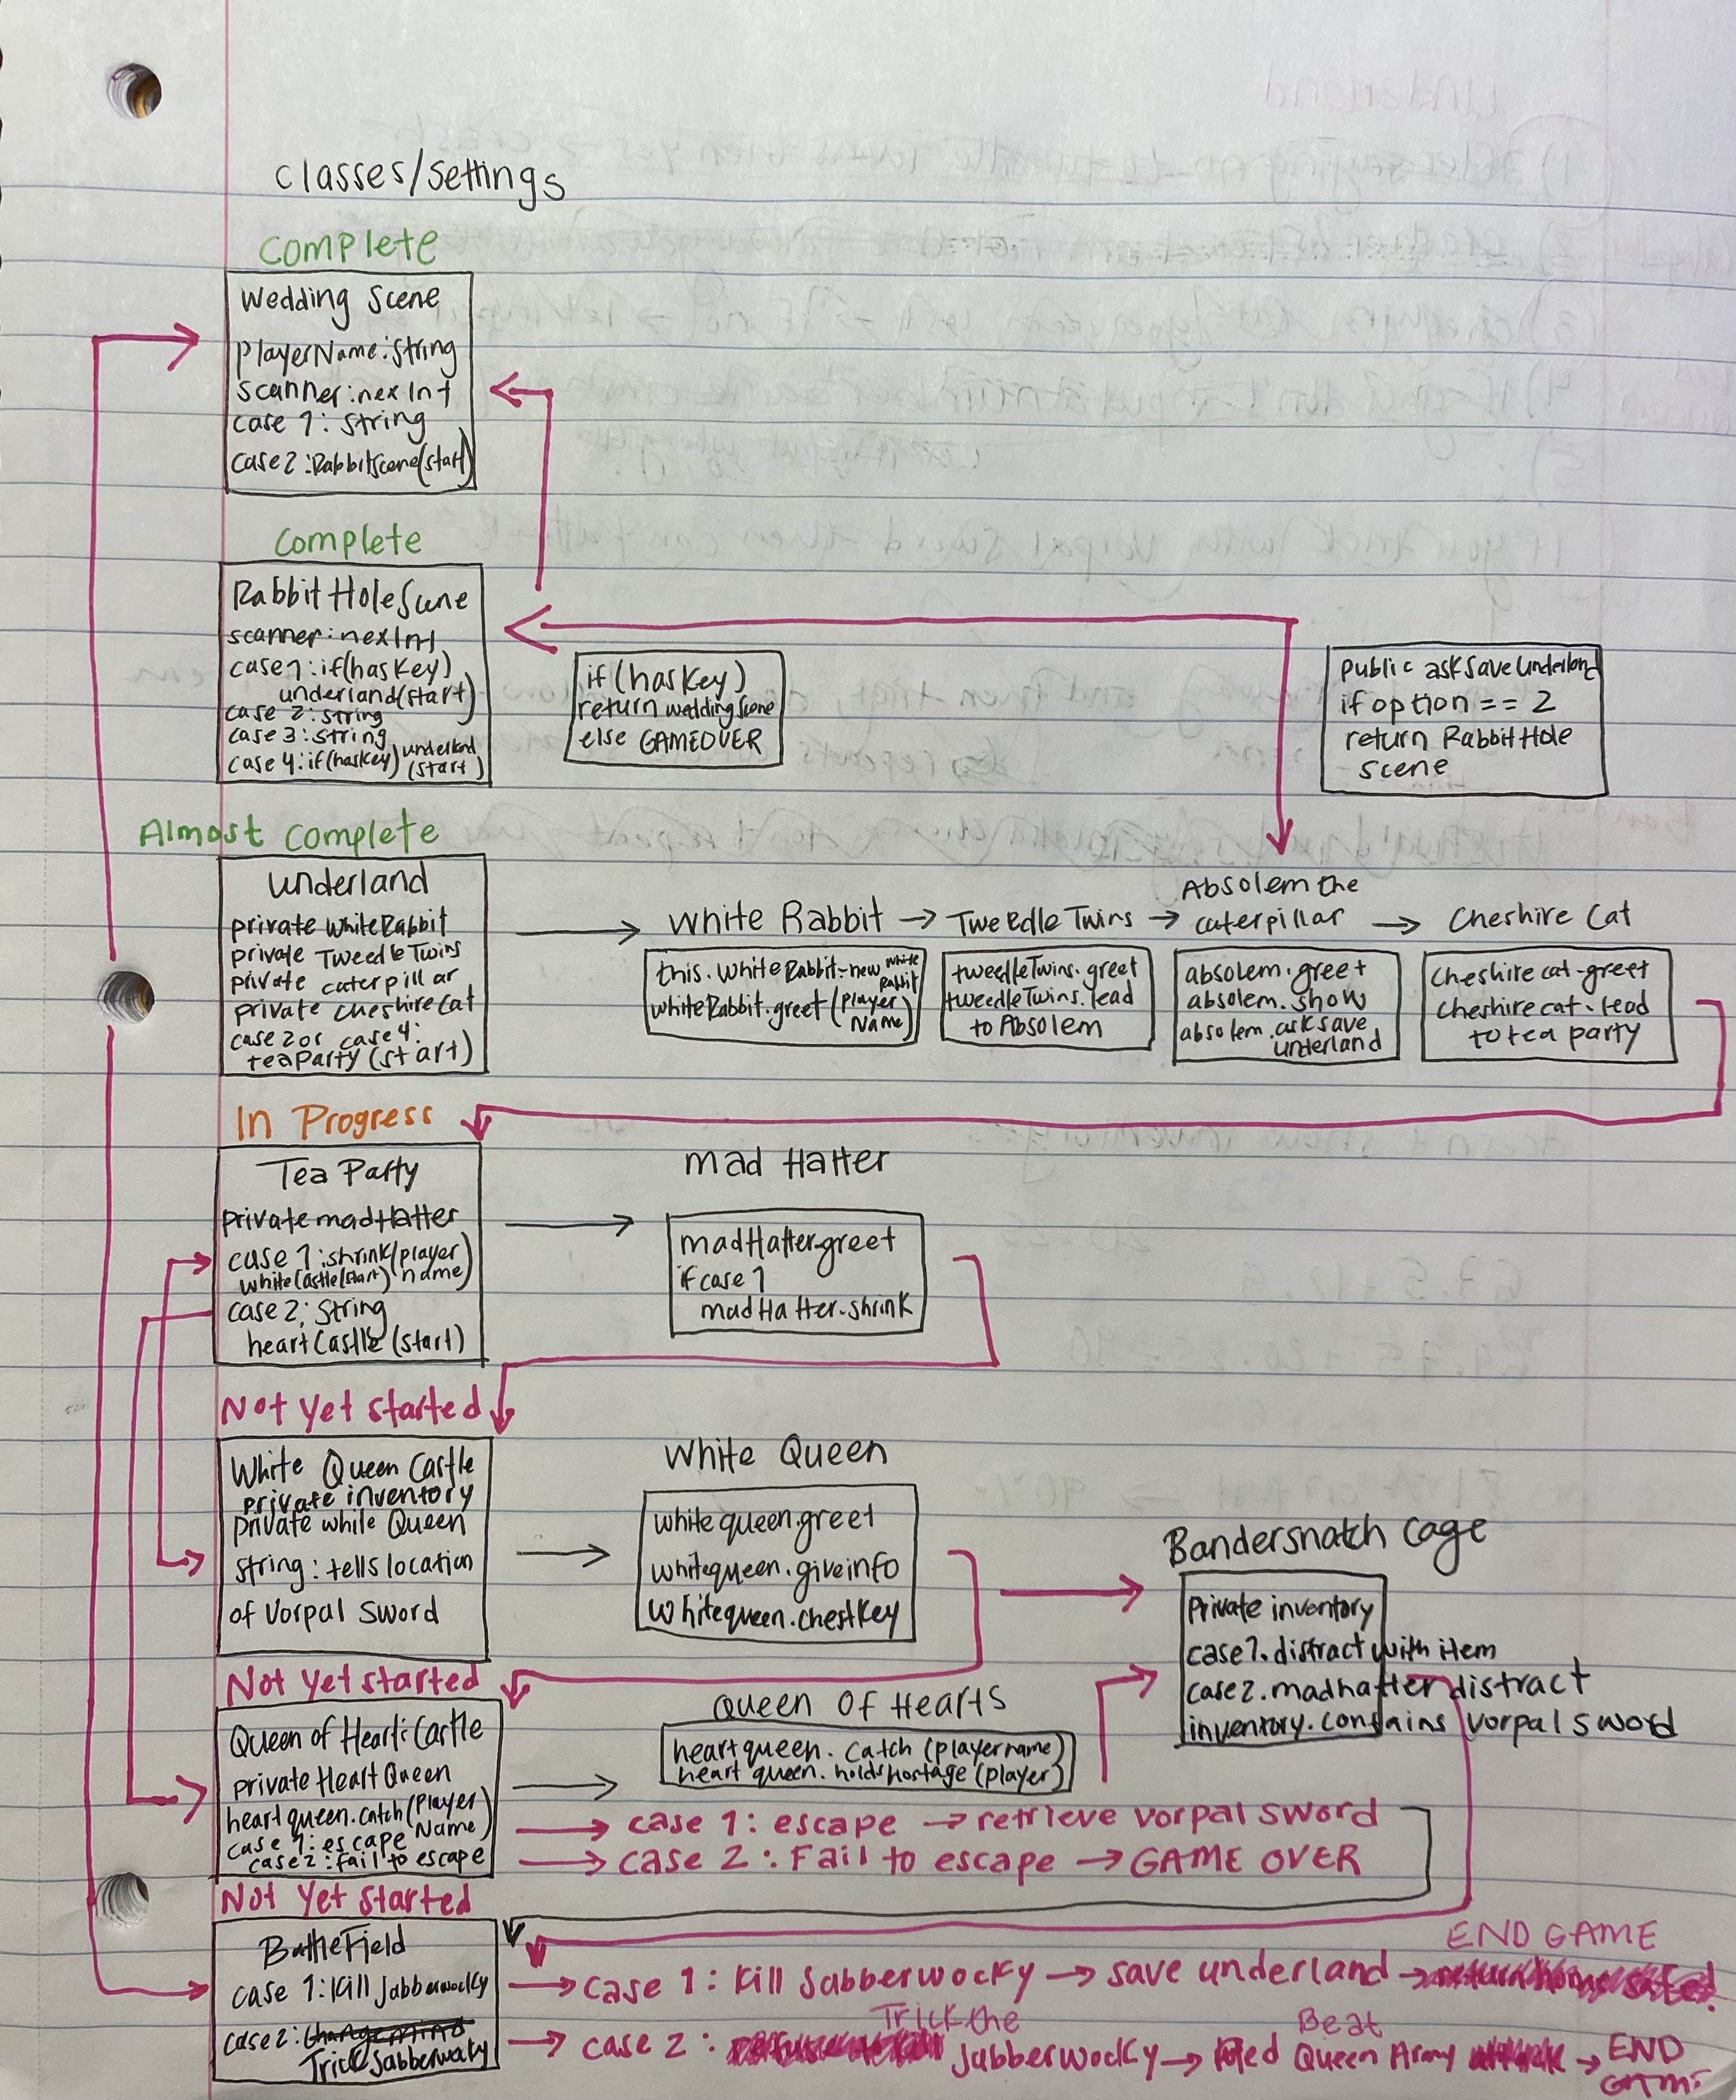 classes/settings
Complete
Wedding Scene
playerName:String
scanner:nexInt
case 1: String
case2:RabbitScene(start)
Complete
Rabbit Hole Scene
scanner:nexInt
case1:if(hasKey)
underland(start)
case 2:string
case 3:string
case 4:if(hasKey) underland
(start)
if(hasKey)
return weddingscene
else GAMEOVER
public asksaveunderland
if option == 2
return RabbitHole
scene
Almost complete
underland
private WhiteRabbit
private TweedleTwins
private caterpillar
private cheshireCat
case 2 or case 4:
teaParty(start)
White Rabbit → Tweedle Twins →
Absolem the
caterpillar → Cheshire Cat
this.whiteRabbit=new White
Rabbit
whiteRabbit.greet(player
Name)
tweedleTwins.greet
tweedleTwins.lead
to Absolem
absolem.greet
absolem.show
absolem.asksave
underland
cheshirecat.greet
cheshirecat.lead
to tea party
In Progress
Tea Party
private madHatter
case 1:shrink(player
name)
whiteCastle(start)
case 2: String
heartCastle(start)
mad Hatter
madHatter.greet
if case 1
madHatter.shrink
Not yet started
White Queen Castle
private inventory
private while Queen
string: tells location
of Vorpal Sword
White Queen
whitequeen.greet
whitequeen.giveinfo
whitequeen.chestKey
Bandersnatch cage
Private inventory
case1.distract with item
case2.madhatter distract
inventory.contains vorpal sword
Not yet started
Queen of Heart's Castle
private Heart Queen
heartqueen.catch(Player
Name)
case 1:escape
case2:fail to escape
Queen Of Hearts
heartqueen.catch(playername)
heart queen.holdshostage(player)
case 1: escape → retrieve vorpal sword
case 2: Fail to escape → GAME OVER
Not yet started
BattleField
case 1:Kill Jabberwocky
case2: change mind
Trick Jabberwaky
END GAME
case 1: Kill Jabberwocky → save underland →
Trick the
Beat
case 2: Jabberwocky → Red Queen Army → END
GAME